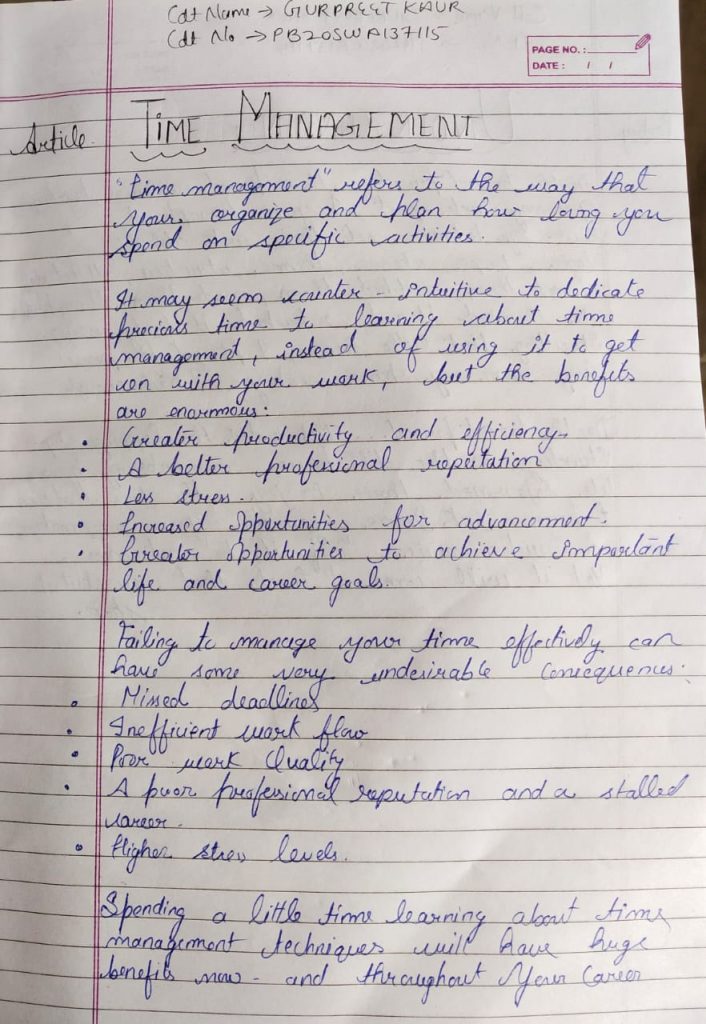 Cdt Name → GURPREET KAUR
Cdt No → PB20SWA137115
PAGE NO. :
DATE : / /
Article
TIME MANAGEMENT
"time management" refers to the way that
your organize and plan how long you
spend on specific activities.
It may seem counter-intuitive to dedicate
precious time to learning about time
management, instead of using it to get
on with your work, but the benefits
are enormous:
• Greater productivity and efficiency.
• A better professional reputation
• Less stress.
• Increased opportunities for advancement.
• Greater opportunities to achieve important
life and career goals.
Failing to manage your time effectively can
have some very undesirable consequences:
• Missed deadlines
• Inefficient work flow
• Poor work Quality
• A poor professional reputation and a stalled
career.
• Higher stress levels.
Spending a little time learning about time
management techniques will have huge
benefits now - and throughout Your Career